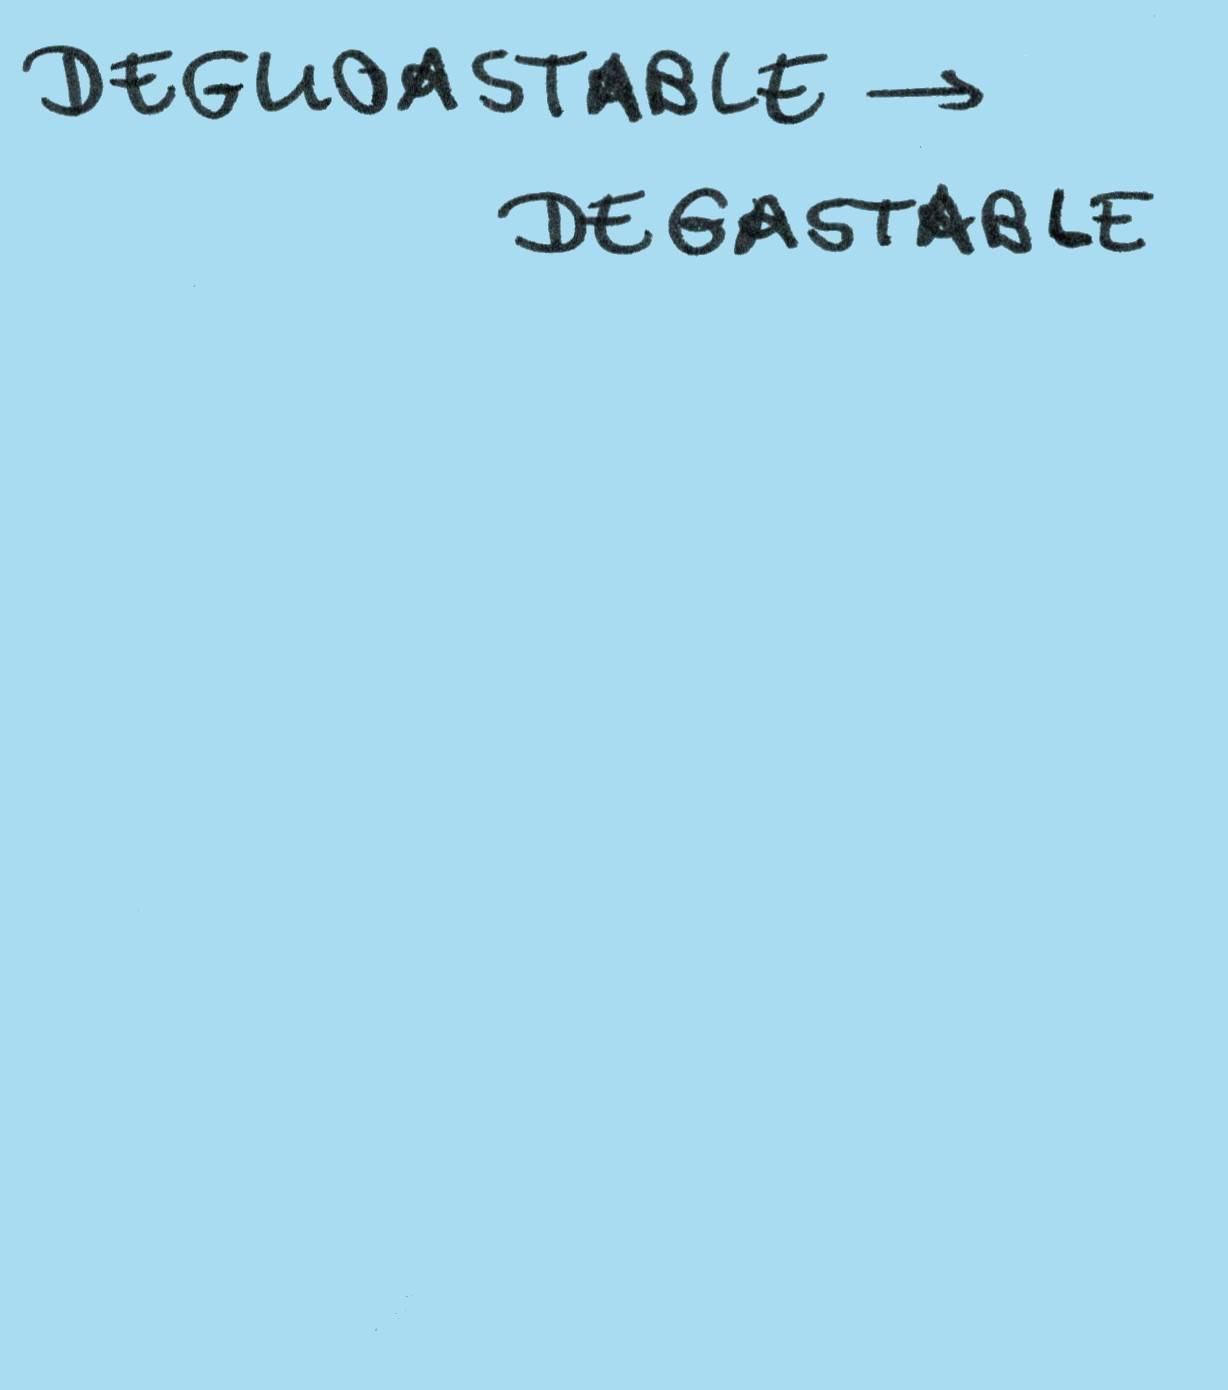 DEGUOASTABLE →
DEGASTABLE